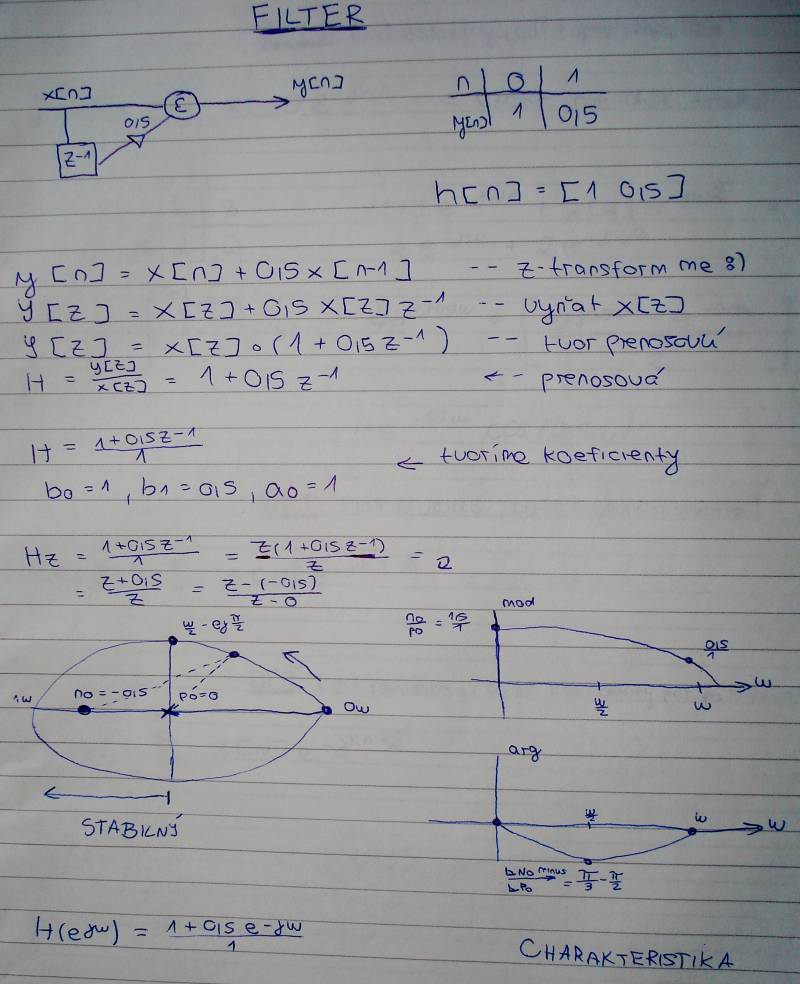 FILTER
x[n] y[n]
0,5
Σ
z-1
n 0 1
y[n] 1 0,5
h[n] = [1 0,5]
y[n] = x[n] + 0,5 x[n-1] -- z-transformme 8)
y[z] = x[z] + 0,5 x[z] z⁻¹ -- vyňať x[z]
y[z] = x[z] · (1 + 0,5 z⁻¹) -- tvor prenosovú
H = y[z]/x[z] = 1 + 0,5 z⁻¹ <-- prenosová
H = 1+0,5z⁻¹/1 <- tvoríme koeficienty
b0 = 1, b1 = 0,5, a0 = 1
Hz = 1+0,5z⁻¹/1 = z(1+0,5z⁻¹)/z =
= z+0,5/z = z-(-0,5)/z-0
w/2 - ej π/2
n0=-0,5 p0=0 0w
STABILNÝ
mod
n0/p0 = 1,5/1
0,5/1
w/2 w w
arg
w/2 w w
No minus Po = π/3 - π/2
H(ejw) = 1+0,5 e-jw/1
CHARAKTERISTIKA